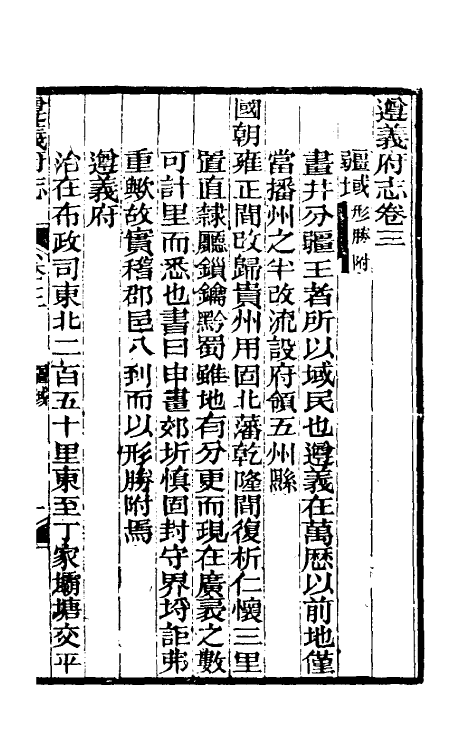 遵義府志卷三
疆域形勝附
畫井分疆王者所以域民也遵義在萬歷以前地僅
當播州之半改流設府領五州縣
國朝雍正間改歸貴州用固北藩乾隆間復析仁懷三里
置直隸廳鎖鑰黔蜀雖地有分更而現在廣袤之數
可計里而悉也書曰申畫郊圻愼固封守界埒詎弗
重歟故實稽郡邑八到而以形勝附焉
遵義府
治在布政司東北二百五十里東至丁家壩塘交平
遵義府志
卷三
疆域
一